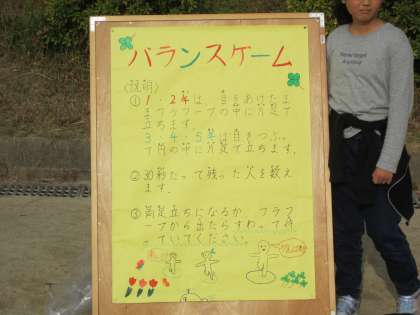 バランスゲーム
〈説明〉
① 1・2年は、目をあけたま
まフラフープの中に片足で
立ちます。
3・4・5年は目をつぶっ
て円の中に片足で立ちます。
② 30秒たって残った人を数え
ます。
③ 両足立ちになるか、フラフ
ープから出たらすわって待
っていてください。